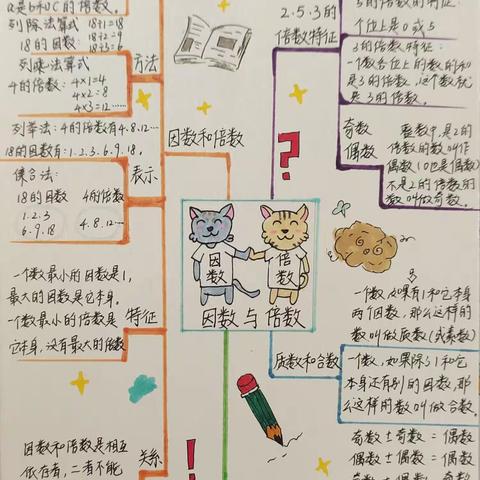 a是b和c的倍数。
列除法算式 18÷1=18
18÷2=9
18的因数: 18÷3=6
方法
列乘法算式
4的倍数: 4×1=4
4×2=8
4×3=12……
列举法: 4的倍数有4.8.12…
18的因数有: 1.2.3.6.9.18。
表示
集合法:
18的因数 4的倍数
1.2.3
6.9.18 4.8.12…
因数和倍数
一个数最小的因数是1,
最大的因数是它本身。
一个数最小的倍数是
它本身,没有最大的倍数
特征
因数和倍数是相互
依存着,二者不能
关系
因数
倍数
因数与倍数
2.5.3的
倍数特征
5的倍数的特征:
个位上是0或5
3的倍数特征:
一个数各位上的数的和
是3的倍数,这个数就
是3的倍数。
奇数
偶数
整数中,是2的
倍数的数叫作
偶数(0也是偶数)
不是2的倍数的
数叫做奇数。
质数和合数
一个数,如果有1和它本身
两个因数,那么这样的
数叫做质数(或素数)
一个数,如果除了1和它
本身还有别的因数,那
么这样的数叫做合数。
奇数±奇数=偶数
偶数±偶数=偶数